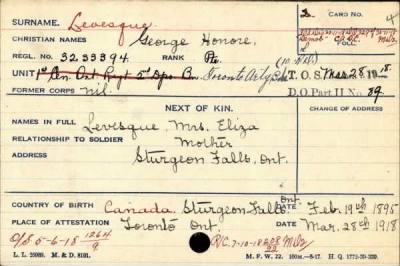 SURNAME. Levesque. CARD NO. 4
CHRISTIAN NAMES George Honore. FOLL.
REGL. NO. 3233394 RANK Pte.
UNIT 1st Cen. Ont. Regt 2nd Dpo Bn. Toronto T.O.S. Mar. 28 1918.
FORMER CORPS Nil. D.O. Part II No. 89
NEXT OF KIN. CHANGE OF ADDRESS
NAMES IN FULL Levesque, Mrs. Eliza
RELATIONSHIP TO SOLDIER Mother
ADDRESS Sturgeon Falls, Ont.
COUNTRY OF BIRTH Canada. Sturgeon Falls Ont. DATE Feb. 19th 1895
PLACE OF ATTESTATION Toronto Ont. DATE Mar. 28th 1918
O/S 5-6-18 1264/9 R/C. 7-10-18
L. L. M. & D. 8191. M. F. W. 22. H. Q. 1772-39-339.